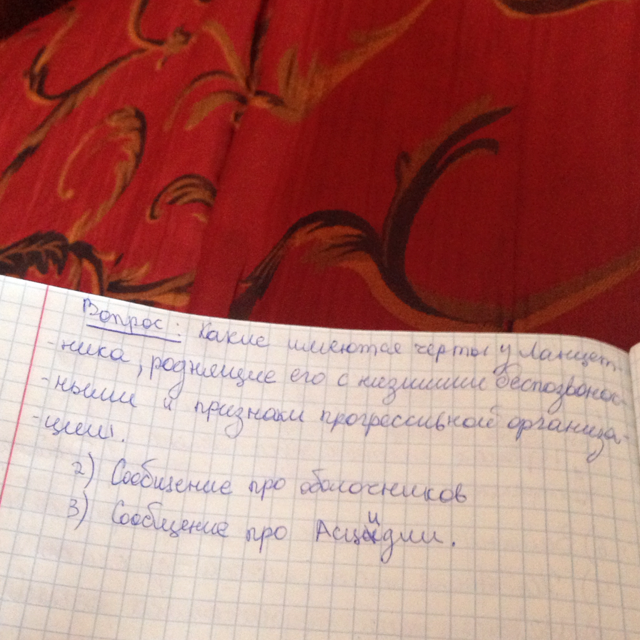 Вопрос: Какие имеются черты у Ланцет-
-ника, роднящие его с низшими беспозвоноч-
-ными и признаки прогрессивной организа-
-ции.
2) Сообщение про оболочников
3) Сообщение про Асцидии.